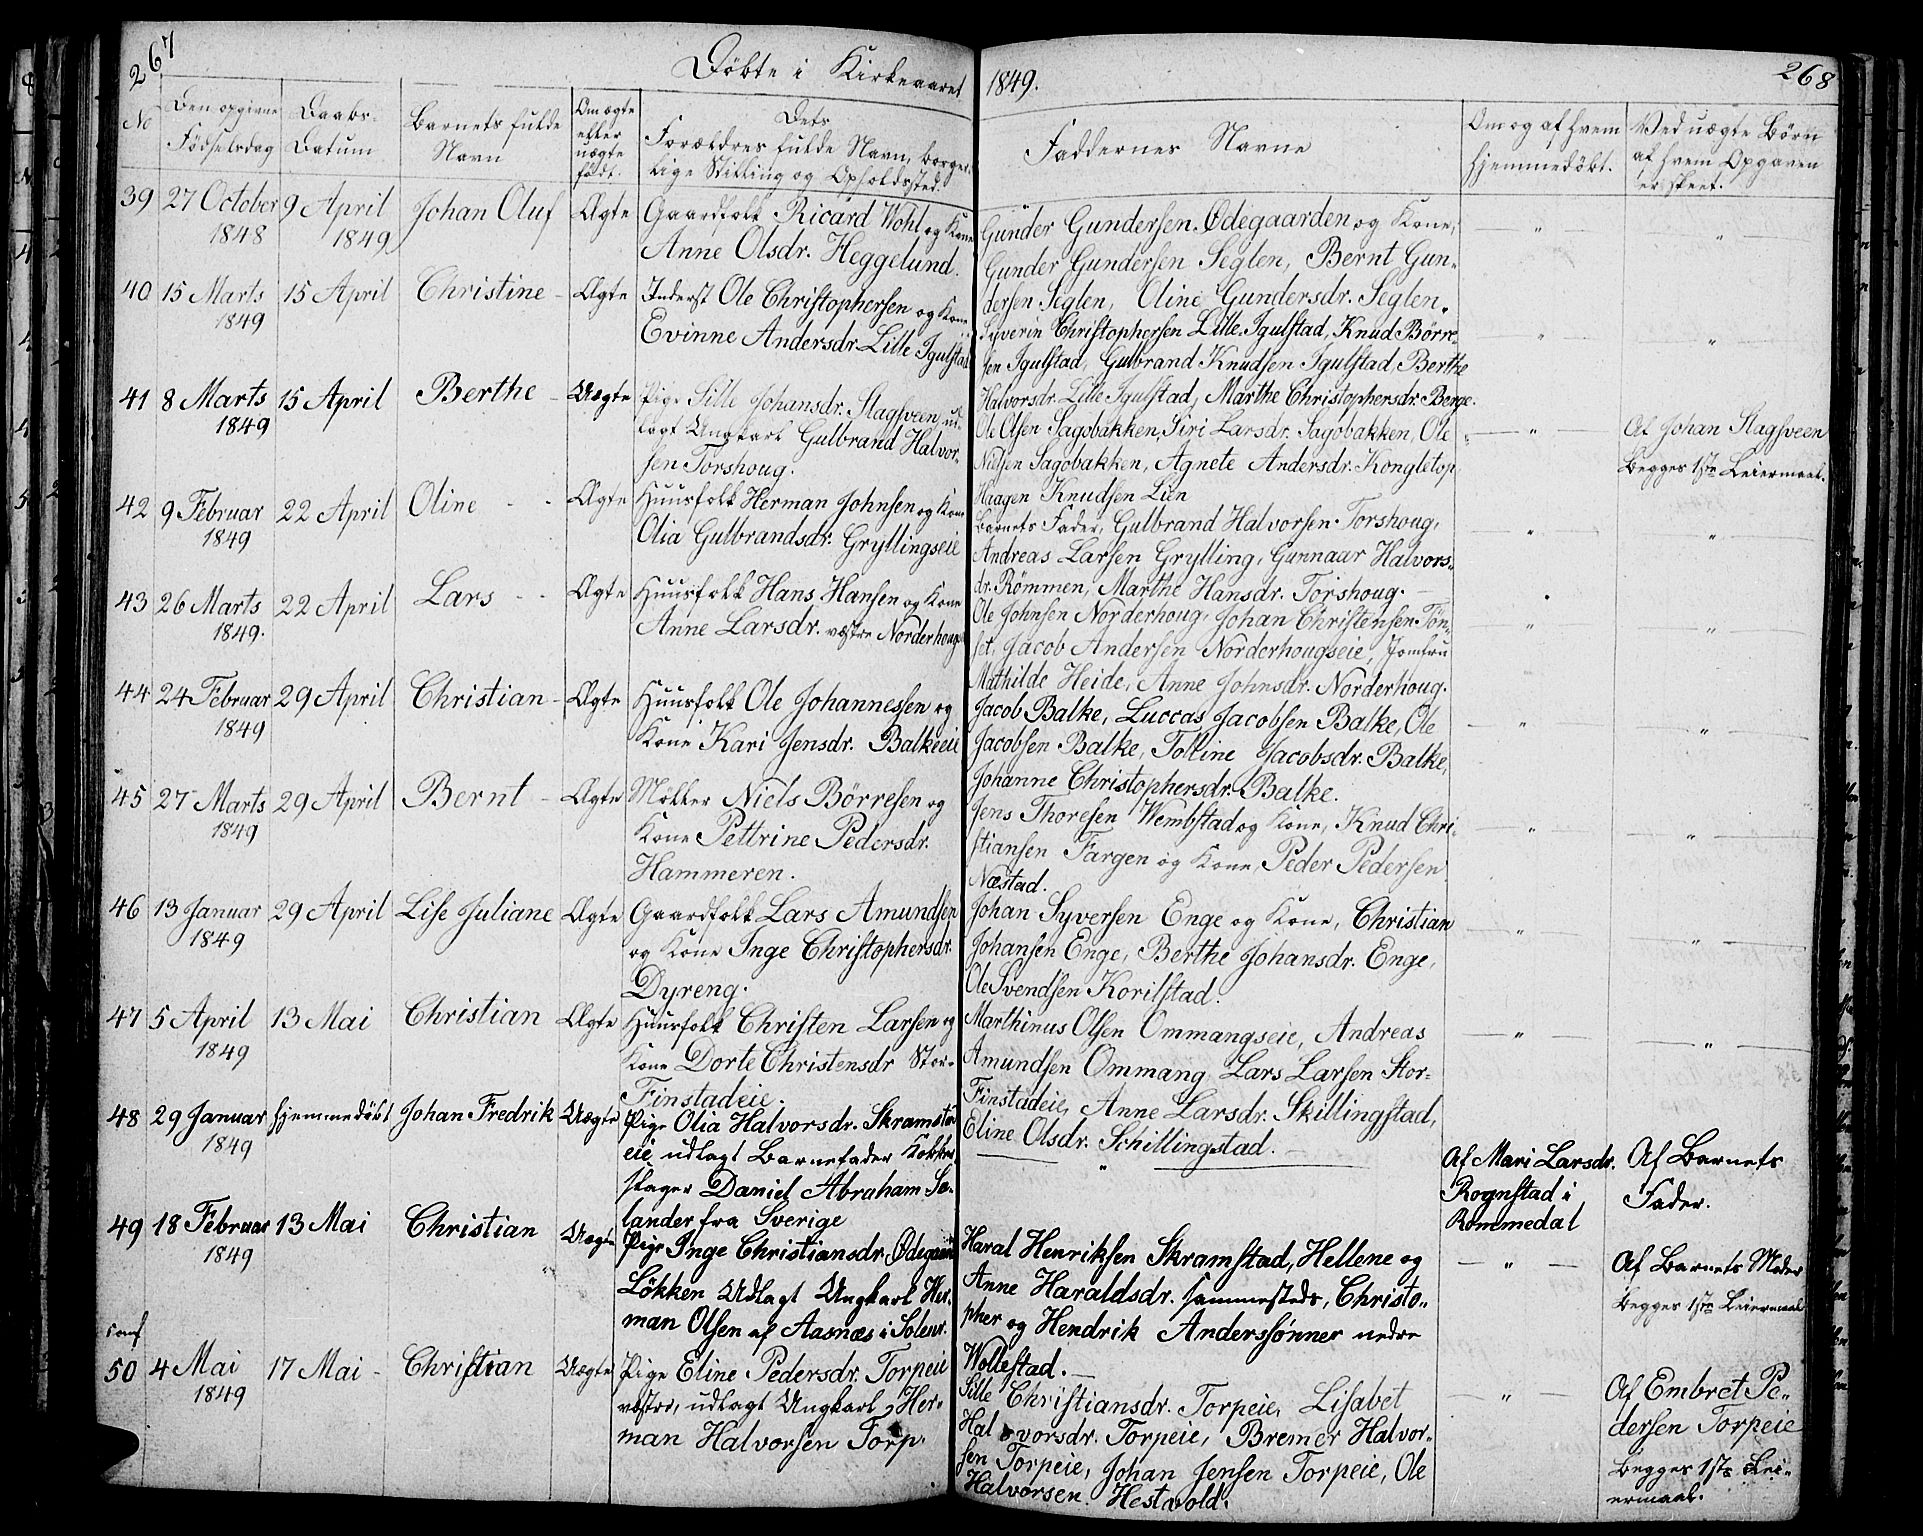 267
Döbte i Kirkeaaret
1849.
268
No
Den opgivne Födselsdag
Daabs-Datum
Barnets fulde Navn
Om ægte eller uægte födt.
Dets Forældres fulde Navn, borgerlige Stilling og Opholdssted.
Faddernes Navne
Om og af hvem hjemmedöbt.
Ved uægte Börn af hvem Opgaven er skeet.
39 27 October 1848
9 April 1849
Johan Oluf
Ægte
Gaardfolk Ricard Wohl og Kone
Anne Olsdr. Heggelund.
Gunder Gundersen Ødegaarden og Kone,
Gunder Gundersen Seglen, Bernt Gun-
dersen Seglen, Oline Gundersdr. Seglen.
40 15 Marts 1849
15 April
Christine
Ægte
Inderst Ole Christophersen og Kone
Evinne Andersdr. Lille Igulstad
Syverin Christophersen Lille Igulstad, Knud Börre-
sen Igulstad, Gulbrand Knudsen Igulstad, Berthe
Halvorsdr. Lille Igulstad, Marthe Christophersdr. Berge.
41 8 Marts 1849
15 April
Berthe
Uægte
Pige Sille Johansdr. Slagsveen, ud-
lagt Ungkarl Gulbrand Halvor-
sen Torshoug.
Ole Olsen Sagobakken, Siri Larsdr. Sagobakken, Ole
Nielsen Sagobakken, Agnete Andersdr. Kongletop
Haagen Knudsen Lien
Af Johan Slagsveen
begges 1ste Leiermaal.
42 9 Februar 1849
22 April
Oline
Ægte
Huusfolk Herman Johnsen og Kone
Olia Gulbrandsdr. Gryllingseie
Barnets Fader, Gulbrand Halvorsen Torshoug,
Andreas Larsen Grylling, Gunnaar Halvors-
dr. Römmen, Marthe Hansdr. Torshoug.
43 26 Marts 1849.
22 April
Lars
Ægte
Huusfolk Hans Hansen og Kone
Anne Larsdr. vestre Norderhoug
Ole Johnsen Norderhoug, Johan Christensen Tön-
set, Jacob Andersen Norderhougseie, Jomfru
Mathilde Heide, Anne Johnsdr. Norderhoug.
44 24 Februar 1849
29 April
Christian
Ægte
Huusfolk Ole Johannessen og
Kone Kari Jensdr. Balkeeie
Jacob Balke, Luccas Jacobsen Balke, Ole
Jacobsen Balke, Tolline Jacobsdr. Balke,
Johanne Christophersdr. Balke.
45 27 Marts 1849
29 April
Bernt
Ægte
Möller Niels Börresen og
Kone Pettrine Pedersdr.
Hammeren.
Jens Thoresen Wembstad og Kone, Knud Chri-
stiansen Fargen og Kone, Peder Pedersen
Næstad.
46 13 Januar 1849
29 April
Lise Juliane
Ægte
Gaardfolk Lars Amundsen
og Kone Inge Christophersdr.
Dyreng.
Johan Syversen Enge og Kone, Christian
Johansen Enge, Berthe Johansdr. Enge,
Ole Svendsen Korilstad.
47 5 April 1849
13 Mai
Christian
Ægte
Huusfolk Christen Larsen og
Kone Dorte Christensdr Stor-
Finstadeie.
Marthinus Olsen Ommangseie, Andreas
Amundsen Ommang, Lars Larsen Stor-
Finstadeie, Anne Larsdr. Skillingstad,
Eline Olsdr. Schillingstad.
48 29 Januar 1849
hjemmedöbt
Johan Fredrik
Uægte
Pige Olia Halvorsdr. Skramstad
eie, udlagt Barnefader Kobber
slager Daniel Abraham Se-
lander fra Sverige
Af Mari Larsdr.
Rognstad i
Rommedal
Af Barnets
Fader.
49 18 Februar 1849
13 Mai
Christian
Uægte
Pige Inge Christiansdr. Ødegaard
Løkken Udlagt Ungkarl Her-
man Olsen af Aasnæs i Soleur.
Haral Henriksen Skramstad, Hellene og
Anne Haraldsdr. sammesteds, Christo-
pher og Hendrik Anderssönner nedre
Wollestad.
Af Barnets Moder
begges 1ste Leiermaal
conf
50 4 Mai 1849
17 Mai
Christian
Uægte
Pige Eline Pedersdr. Torpeie
vestre, udlagt Ungkarl Her-
man Halvorsen Torp.
Sille Christiansdr. Torpeie, Lisabet
Halvorsdr. Torpeie, Bremer Halvor-
sen Torpeie, Johan Jensen Torpeie, Ole
Halvorsen Hestvold.
Af Embret Pe-
dersen Torpeie
begges 1ste Lei-
ermaal.